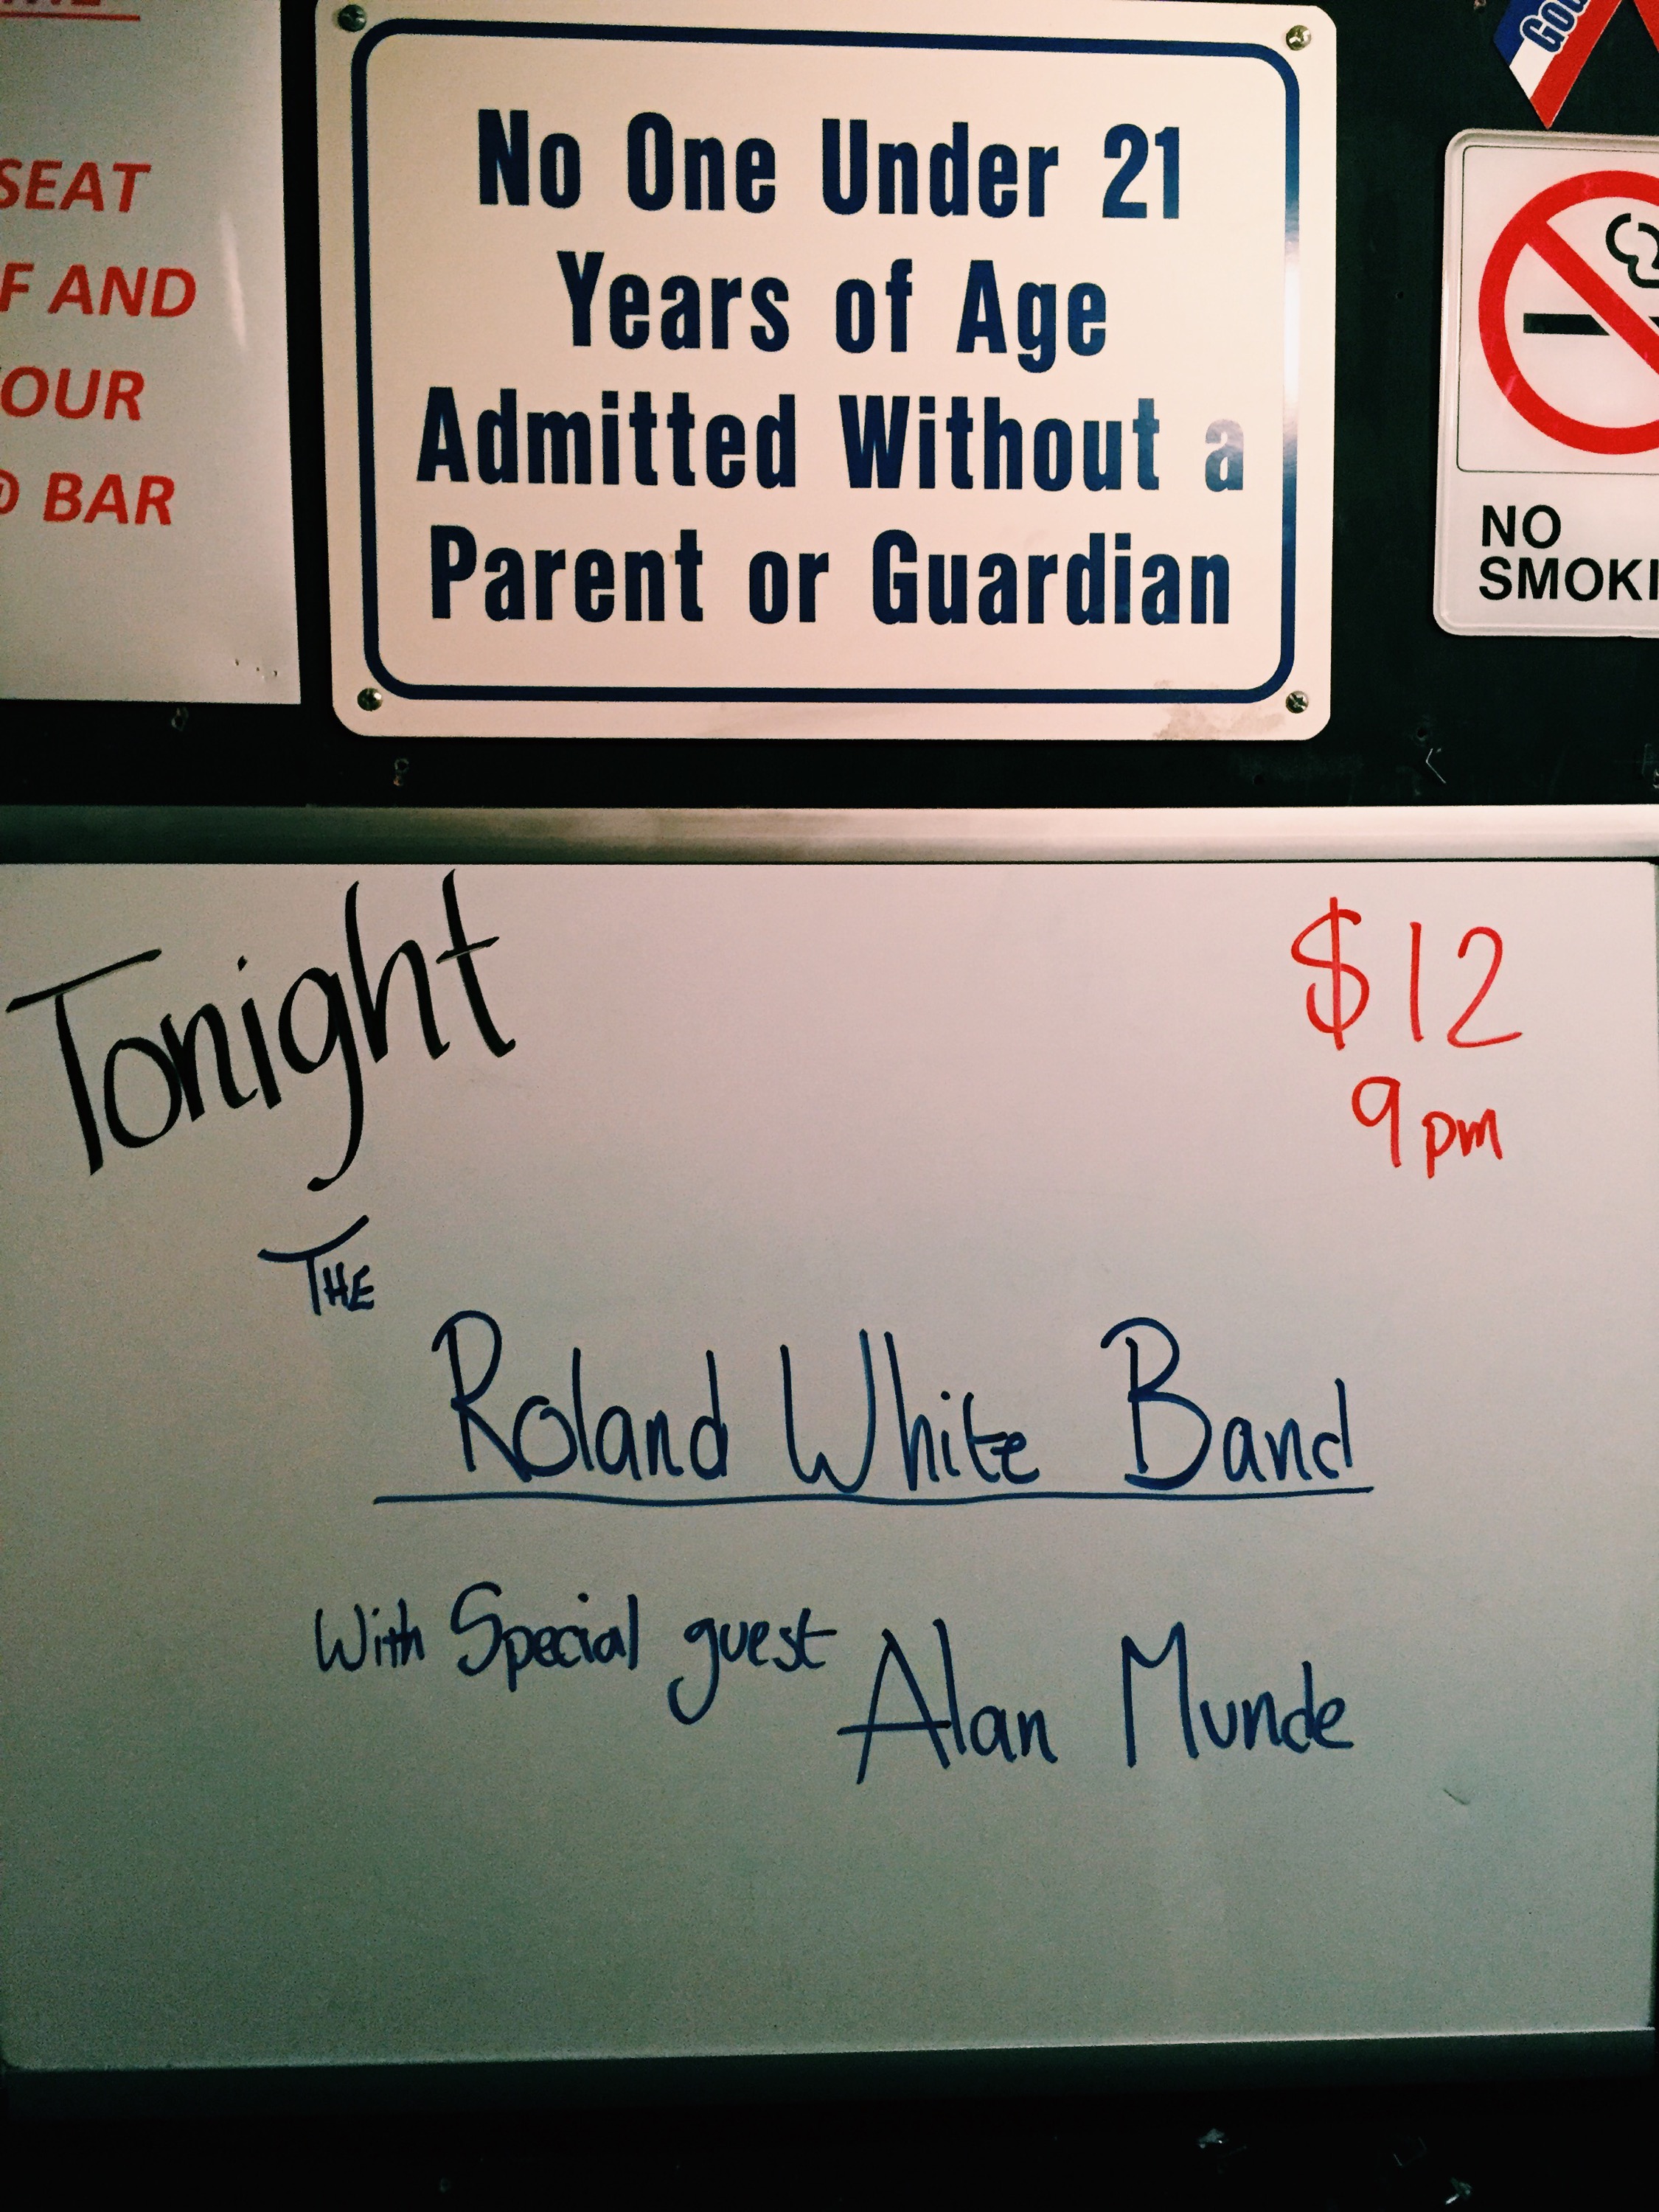 SEAT
AND
BAR
No One Under 21
Years of Age
Admitted Without a
Parent or Guardian
NO
Tonight
$12
9pm
THE
Roland White Band
With Special guest
Alan Munde